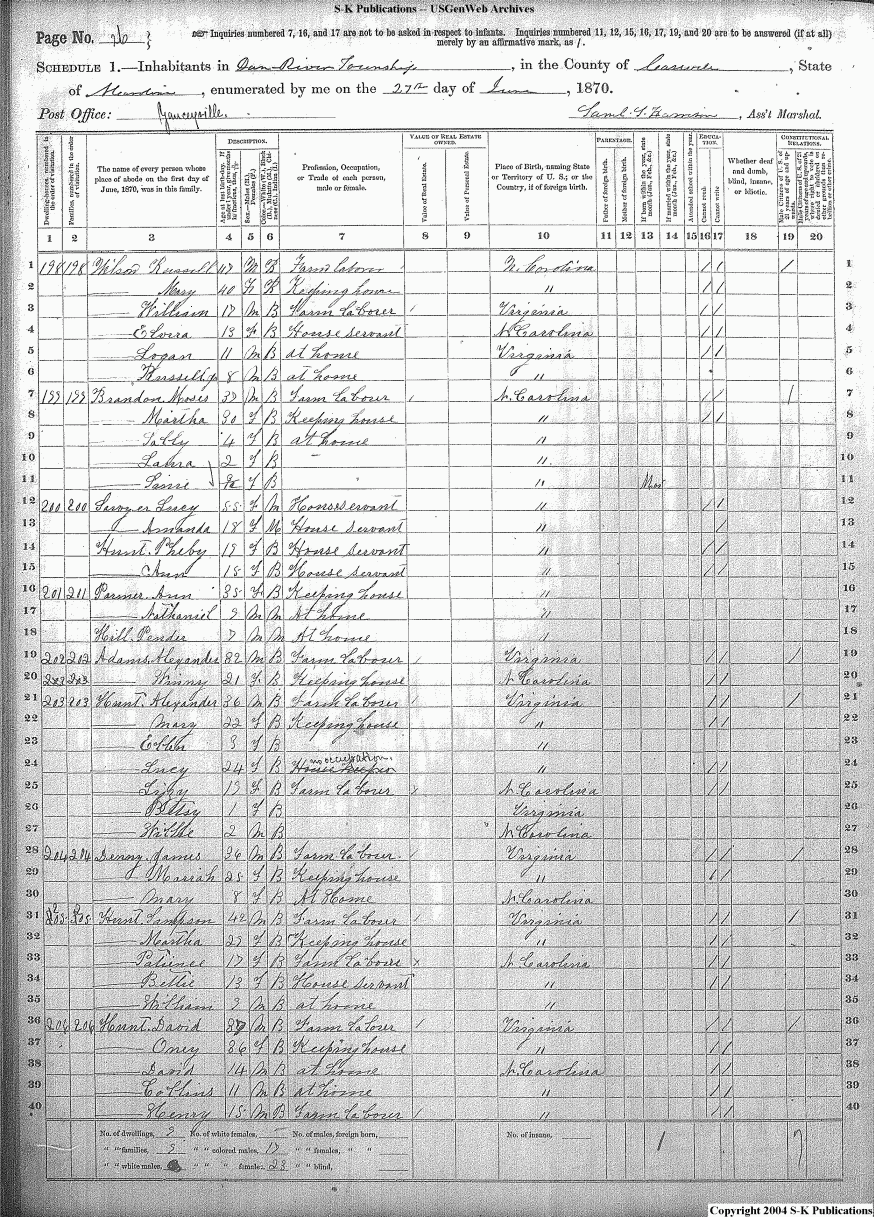 S-K Publications -- USGenWeb Archives
Page No. 26 Inquiries numbered 7, 16, and 17 are not to be asked in respect to infants. Inquiries numbered 11, 12, 15, 16, 17, 19, and 20 are to be answered (if at all) merely by an affirmative mark, as /.
SCHEDULE 1.—Inhabitants in Dan River Township, in the County of Caswell, State
of, enumerated by me on the 27th day of June, 1870.
Post Office: Yanceyville. Saml. S. Harrison, Ass't Marshal.
DESCRIPTION. VALUE OF REAL ESTATE OWNED. PARENTAGE. EDUCATION. CONSTITUTIONAL RELATIONS.
The name of every person whose place of abode on the first day of June, 1870, was in this family.
Profession, Occupation, or Trade of each person, male or female.
Value of Real Estate.
Value of Personal Estate.
Place of Birth, naming State or Territory of U. S.; or the Country, if of foreign birth.
Father of foreign birth.
Mother of foreign birth.
Attended school within the year.
Cannot read.
Cannot write.
Whether deaf and dumb, blind, insane, or idiotic.
1 2 3 4 5 6 7 8 9 10 11 12 13 14 15 16 17 18 19 20
1 198 198 Wilson Russell 47 M B Farm labourer N. Carolina / / / 1
2 — Mary 40 F B Keeping house " / / 2
3 — William 17 M B Farm Labourer / Virginia / / 3
4 — Elvira 13 F B House servant N. Carolina / / 4
5 — Logan 11 M B at home Virginia / / 5
6 — Russell Jr 8 M B at home " 6
7 199 199 Brandon, Moses 37 M B Farm Labour / N. Carolina / / / 7
8 — Martha 30 F B Keeping house " / / 8
9 — Sally 4 F B at home " 9
10 — Laura 2 F B – " 10
11 — F B " 11
12 200 200 Sawyer Lucy 55 F M House servant " / / 12
13 — Amanda 18 F M House servant " / 13
14 Hunt. Pheby 19 F B House servant " / / 14
15 — Ann 15 F B House servant " / / 15
16 201 211 Farmer. Ann 35 F B Keeping house " 16
17 — Nathaniel 9 M M At home " 17
18 Hill. Pender 7 M M At home " 18
19 202 202 Adams. Alexander 82 M B Farm Labour / Virginia / / / 19
20 203 203 — Winny 21 F B Keeping house N. Carolina / / 20
21 203 203 Hunt. Alexander 36 M B Farm Laborer / Virginia / / / 21
22 — Mary 22 F B Keeping house " / / 22
23 — Ellen 3 F B " 23
24 — Lucy 24 F B no occupation. " / / 24
25 — Lizzy 19 F B Farm Labourer x N. Carolina / / 25
26 — Betsy 1 F B Virginia 26
27 — Willie 2 M B N. Carolina 27
28 204 204 Denny. James 36 M B Farm Labour. / Virginia / / / 28
29 — Mariah 25 F B Keeping house " / / 29
30 — Mary 8 F B At Home N. Carolina 30
31 205 205 Hunt Sampson 42 M B Farm Labour / Virginia / / / 31
32 — Martha 27 F B Keeping house " / / 32
33 — Patience 17 F B Farm Labour x N. Carolina / / 33
34 — Bettie 13 F B House servant " / / 34
35 — William 9 M B at home " 35
36 206 206 Hunt. David M B Farm Labour / Virginia / / / 36
37 — Oney 36 F B Keeping house " / / 37
38 — David 14 M B at home N. Carolina / / 38
39 — Collins 11 M B at home " / / 39
40 — Henry 15 M B Farm Labour / " / / 40
No. of dwellings, 9 No. of white females, — No. of males, foreign born, No. of insane, 1 7
" " families, 9 " " colored males, 17 " " females, " "
" " white males, " " females, 23 " " blind,
Copyright 2004 S-K Publications